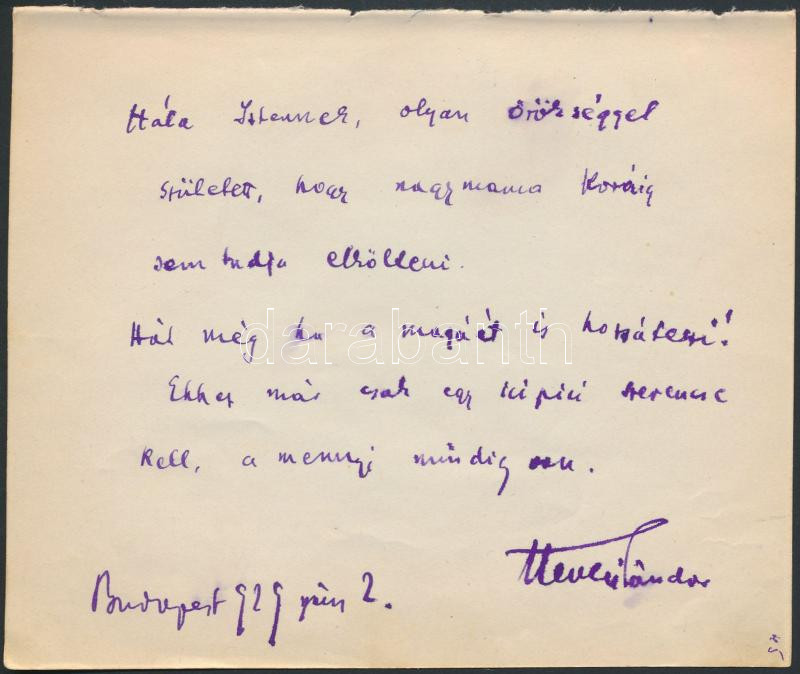 Hála Istennek, olyan örökséggel
született, hogy nagymama koráig
sem tudja elkölteni.
Hát még ha a magáét is hozzáteszi!
Ehhez már csak egy icipici szerencse
kell, a mennyi mindig van.
Hevesi Sándor
Budapest 929 jún 2.
darabanth